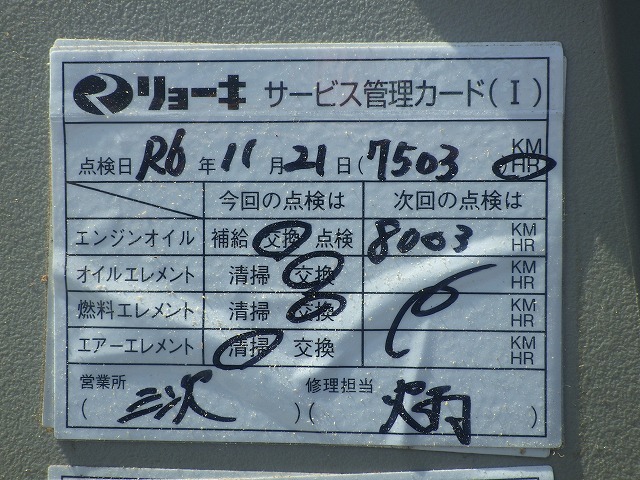 リョーキ サービス管理カード(I)
点検日 R6年11月21日(7503)KM HR
今回の点検は 次回の点検は
エンジンオイル 補給 交換 点検 8003 KM HR
オイルエレメント 清掃 交換 KM HR
燃料エレメント 清掃 交換 KM HR
エアーエレメント 清掃 交換 KM HR
営業所 修理担当
(三次)( )